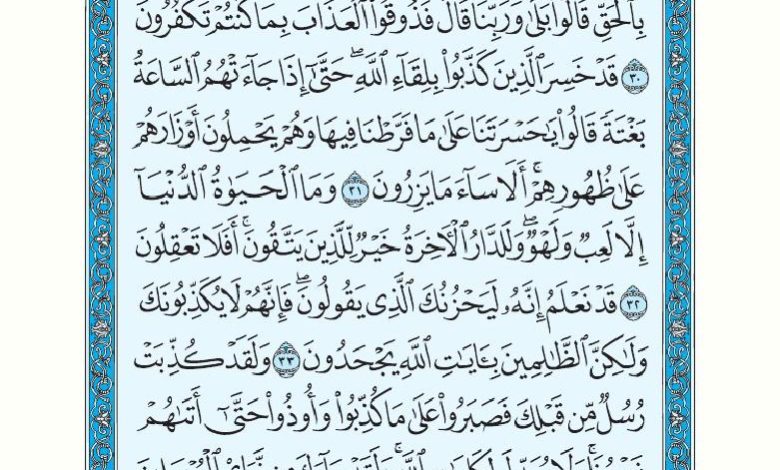 بِٱلۡحَقِّۚ قَالُواْ بَلَىٰ وَرَبِّنَاۚ قَالَ فَذُوقُواْ ٱلۡعَذَابَ بِمَا كُنتُمۡ تَكۡفُرُونَ
٣٠ قَدۡ خَسِرَ ٱلَّذِينَ كَذَّبُواْ بِلِقَآءِ ٱللَّهِۖ حَتَّىٰٓ إِذَا جَآءَتۡهُمُ ٱلسَّاعَةُ
بَغۡتَةٗ قَالُواْ يَٰحَسۡرَتَنَا عَلَىٰ مَا فَرَّطۡنَا فِيهَا وَهُمۡ يَحۡمِلُونَ أَوۡزَارَهُمۡ
عَلَىٰ ظُهُورِهِمۡۚ أَلَا سَآءَ مَا يَزِرُونَ ٣١ وَمَا ٱلۡحَيَوٰةُ ٱلدُّنۡيَآ
إِلَّا لَعِبٞ وَلَهۡوٞۖ وَلَلدَّارُ ٱلۡأٓخِرَةُ خَيۡرٞ لِّلَّذِينَ يَتَّقُونَۚ أَفَلَا تَعۡقِلُونَ
٣٢ قَدۡ نَعۡلَمُ إِنَّهُۥ لَيَحۡزُنُكَ ٱلَّذِي يَقُولُونَۖ فَإِنَّهُمۡ لَا يُكَذِّبُونَكَ
وَلَٰكِنَّ ٱلظَّٰلِمِينَ بِـَٔايَٰتِ ٱللَّهِ يَجۡحَدُونَ ٣٣ وَلَقَدۡ كُذِّبَتۡ
رُسُلٞ مِّن قَبۡلِكَ فَصَبَرُواْ عَلَىٰ مَا كُذِّبُواْ وَأُوذُواْ حَتَّىٰٓ أَتَىٰهُمۡ